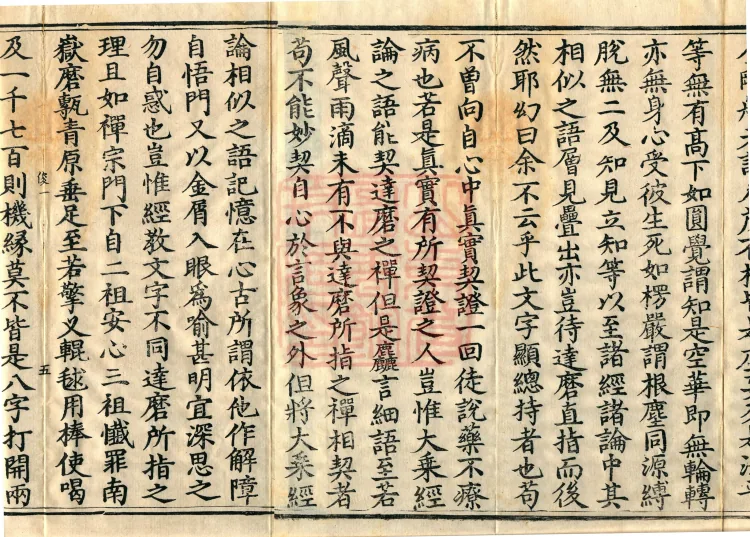 等無有髙下如圓覺謂知是空華即無輪轉
亦無身心受彼生死如楞嚴謂根塵同源縛
脫無二及知見立知等以至諸經諸論中其
相似之語層見疊出亦豈待達磨直指而後
然耶幻曰余不云乎此文字顯總持者也苟
不曾向自心中眞實契證一回徒說藥不療
病也若是眞實有所契證之人豈惟大乗經
論之語能契達磨之禪但是麤言細語至若
風聲雨滴未有不與達磨所指之禪相契者
苟不能妙契自心於言象之外但將大乗經
論相似之語記憶在心古所謂依他作解障
自悟門又以金屑入眼爲喻甚明宜深思之
勿自惑也豈惟經教文字不同達磨所指之
理且如禪宗門下自二祖安心三祖懺罪南
嶽磨甎青原垂足至若擎叉輥毬用棒使喝
俊一 五
及一千七百則機縁莫不皆是八字打開兩